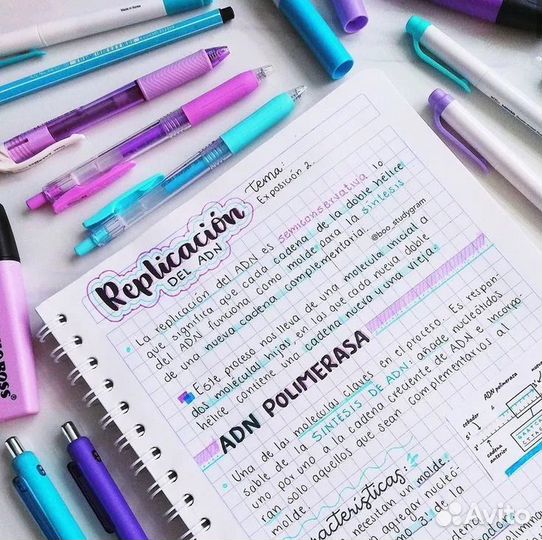 Replicación
DEL ADN
Tema:
Exposición 2.
La replicación del ADN es semiconservativa lo
que significa que cada cadena de la doble hélice
del ADN funciona como molde para la síntesis
de una nueva cadena complementaria.
@boo_studygram
Este proceso nos lleva de una molécula inicial a
dos moléculas hijas, en las que cada nueva doble
hélice contiene una cadena nueva y una vieja.
ADN POLIMERASA
Una de las moléculas claves en el proceso. Es respon-
sable de la SÍNTESIS DE ADN: añade nucleótidos
uno por uno a la cadena creciente de ADN e incorpo-
ran solo aquellos que sean complementarios al
molde.
características:
necesitan un molde
agregar nucleó-
3' de la
ADN polimerasa
cebador
cadena
anterior
BOSS
Avito